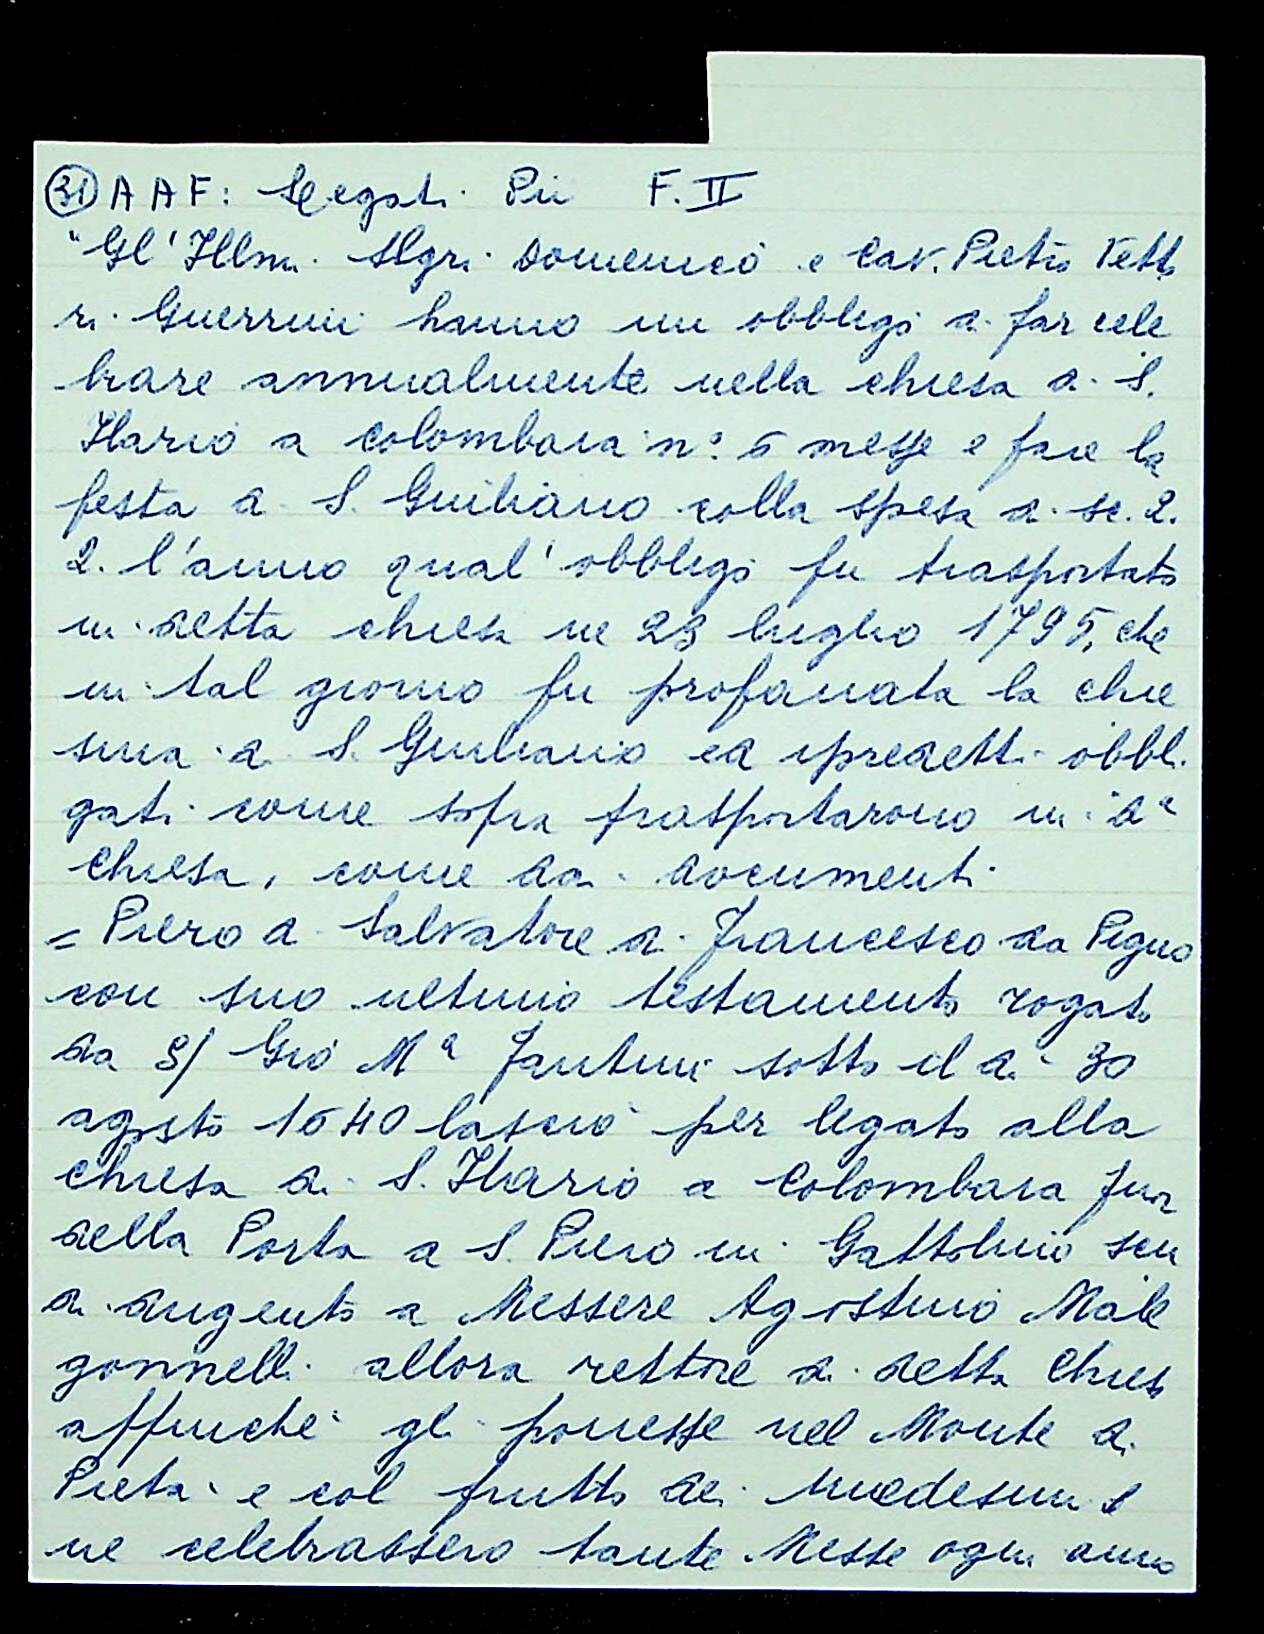 31 A A F: Legati Pii F. II
"Gl' Illmi. SSgri. Domenico e Cav. Pietro Vetto
ri. Guerrini hanno un obbligo di far cele
brare annualmente nella chiesa di S.
Ilario a Colombaia n° 6 messe e fare la
festa di S. Giuliano colla spesa di sc. 2.
2. l'anno qual' obbligo fu trasportato
in detta chiesa ne 23 luglio 1795, che
in tal giorno fu profanata la chie
sina di S. Giuliano ed i predetti obbli
gati come sopra trasportarono in da
chiesa, come da documenti.
= Piero di Salvatore di Francesco da Pigno
con suo ultimo testamento rogato
da S/ Gio Ma Fantini sotto il dì 30
agosto 1640 lasciò per legato alla
chiesa di S. Ilario a Colombaia fuor
della Porta a S. Piero in Gattolino scu
di dugento a Messere Agostino Male
gonnelli allora rettore di detta chiesa
affinché gli ponesse nel Monte di
Pietà e col frutto dei medesimi s
ne celebrassero tante Messe ogni anno